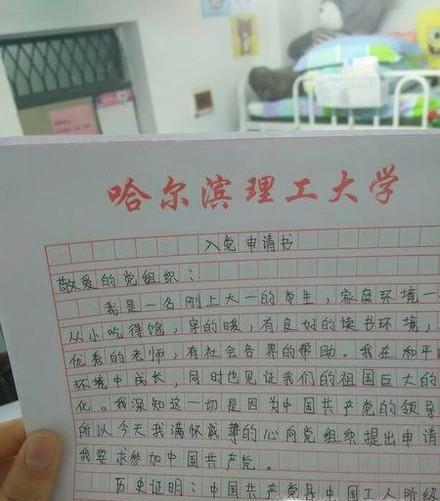 哈尔滨理工大学
入党申请书
敬爱的党组织：
我是一名刚上大一的学生，家庭环境一
从小吃得饱，穿的暖，有良好的读书环境，
优秀的老师，有社会各界的帮助。我在和平
环境中成长，同时也见证我们的祖国巨大的
化。我深知这一切是因为中国共产党的领导
所以今天我满怀诚挚的心向党组织提出申请
我要求参加中国共产党。
历史证明：中国共产党是中国工人阶级